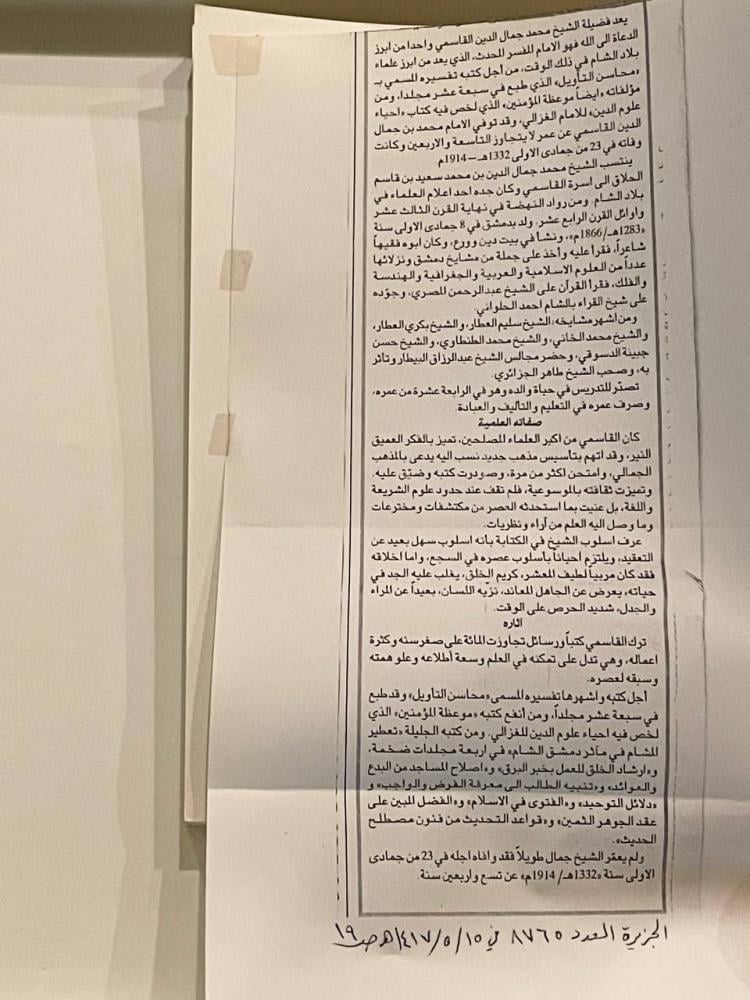 يعد فضيلة الشيخ محمد جمال الدين القاسمي واحدا من ابرز
الدعاة الى الله فهو الامام المفسر المحدث، الذي يعد من ابرز علماء
بلاد الشام في ذلك الوقت، من أجل كتبه تفسيره المسمي بـ
«محاسن التأويل» الذي طبع في سبعة عشر مجلدا، ومن
مؤلفاته «ايضاً موعظة المؤمنين» الذي لخص فيه كتاب «احياء
علوم الدين» للامام الغزالي، وقد توفي الامام محمد بن جمال
الدين القاسمي عن عمر لا يتجاوز التاسعة والاربعين وكانت
وفاته في 23 من جمادى الاولى 1332هـ ـ 1914م
ينتسب الشيخ محمد جمال الدين بن محمد سعيد بن قاسم
الحلاق الى اسرة القاسمي وكان جده احد اعلام العلماء في
بلاد الشام. ومن رواد النهضة في نهاية القرن الثالث عشر
وأوائل القرن الرابع عشر. ولد بدمشق في 8 جمادى الاولى سنة
«1283هـ/1866م»، ونشأ في بيت دين وورع، وكان ابوه فقيهاً
شاعراً، فقرأ عليه وأخذ على جملة من مشايخ دمشق ونزلائها
عدداً من العلوم الاسلامية والعربية والجغرافية والهندسة
والفلك، فقرأ القرآن على الشيخ عبدالرحمن المصري، وجوّده
على شيخ القراء بالشام احمد الحلواني.
ومن اشهر مشايخه: الشيخ سليم العطار، والشيخ بكري العطار،
والشيخ محمد الخاني، والشيخ محمد الطنطاوي، والشيخ حسن
جبينة الدسوقي، وحضر مجالس الشيخ عبدالرزاق البيطار وتأثر
به، وصحب الشيخ طاهر الجزائري.
تصدّر للتدريس في حياة والده وهو في الرابعة عشرة من عمره،
وصرف عمره في التعليم والتأليف والعبادة.
صفاته العلمية
كان القاسمي من اكبر العلماء المصلحين، تميز بالفكر العميق
النير، وقد اتهم بتأسيس مذهب جديد نسب اليه يدعى بالمذهب
الجمالي، وامتحن اكثر من مرة، وصودرت كتبه وضيّق عليه.
وتميزت ثقافته بالموسوعية، فلم تقف عند حدود علوم الشريعة
واللغة، بل عنيت بما استحدثه العصر من مكتشفات ومخترعات
وما وصل اليه العلم من آراء ونظريات.
عرف اسلوب الشيخ في الكتابة بأنه اسلوب سهل بعيد عن
التعقيد، ويلتزم أحياناً بأسلوب عصره في السجع، واما اخلاقه
فقد كان مربياً لطيف المعشر، كريم الخلق، يغلب عليه الجد في
حياته، يعرض عن الجاهل المعاند، نزيّه اللسان، بعيداً عن المراء
والجدل، شديد الحرص على الوقت.
آثاره
ترك القاسمي كتباً ورسائل تجاوزت المائة على صغر سنه وكثرة
اعماله، وهي تدل على تمكنه في العلم وسعة أطلاعه وعلو همته
وسبقه لعصره.
أجل كتبه واشهرها تفسيره المسمى «محاسن التأويل» وقد طبع
في سبعة عشر مجلداً، ومن أنفع كتبه «موعظة المؤمنين» الذي
لخص فيه احياء علوم الدين للغزالي. ومن كتبه الجليلة «تعطير
المشام في مآثر دمشق الشام» في اربعة مجلدات ضخمة،
و«ارشاد الخلق للعمل بخبر البرق» و«اصلاح المساجد من البدع
والعوائد» و«تنبيه الطالب الى معرفة الفرض والواجب» و
«دلائل التوحيد» و«الفتوى في الاسلام» و«الفضل المبين على
عقد الجوهر الثمين» و«قواعد التحديث من فنون مصطلح
الحديث».
ولم يعمّر الشيخ جمال طويلاً فقد وافاه اجله في 23 من جمادى
الاولى سنة «1332هـ/ 1914م» عن تسع واربعين سنة.
الجزيرة العدد ٨٧٦٥ في ١٥/٥/١٤١٧هـ ص١٩